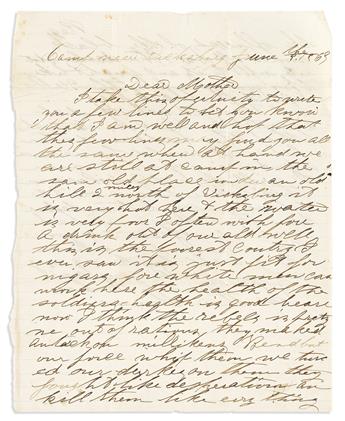 Camp near Vicksburg June 1863
Dear Mother
I take this opertunity to write
you a few lines to let you know
that I am well and hop that
thes few lines may find you all
the same when at hand we
are still at camp in the
sam old place on an old
hill 2 miles north of Vicksburg it
is very hot here & the water
is very I often wish for
a drink out of our old well
this is the poorest Contry I
ever saw it is just fit for
nigars fore white man can
here the health of the
soldiers health is good heare
now I think the rebels is
ne out of rations they maked
an atack on millekens Bend but
our force whip them we turn
ed our darkes on them they
fought like desperations an
kill them like every thing